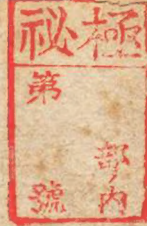 極祕
部ノ内
第　號